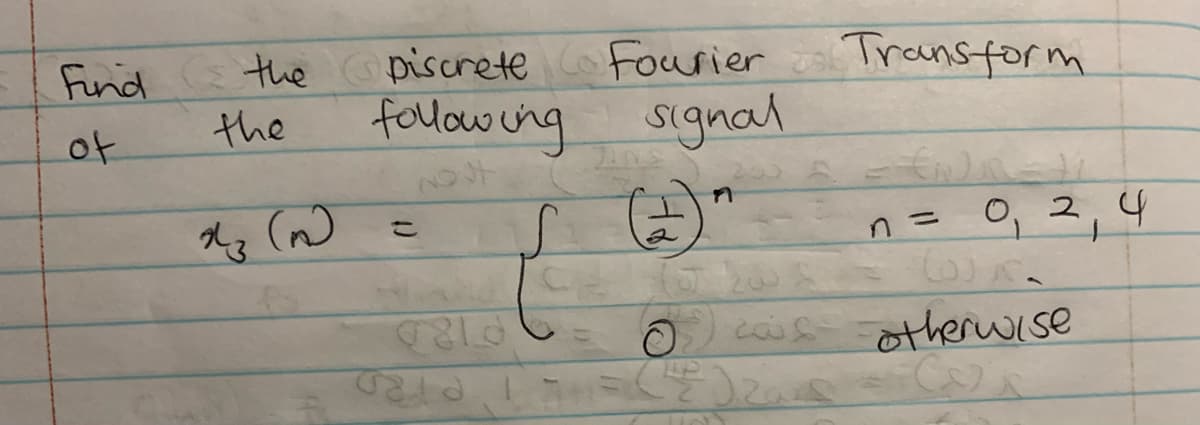 Find the Discrete Fourier Transform
of the following signal
x₃(n) = { (1/2)ⁿ n = 0, 2, 4
0 otherwise